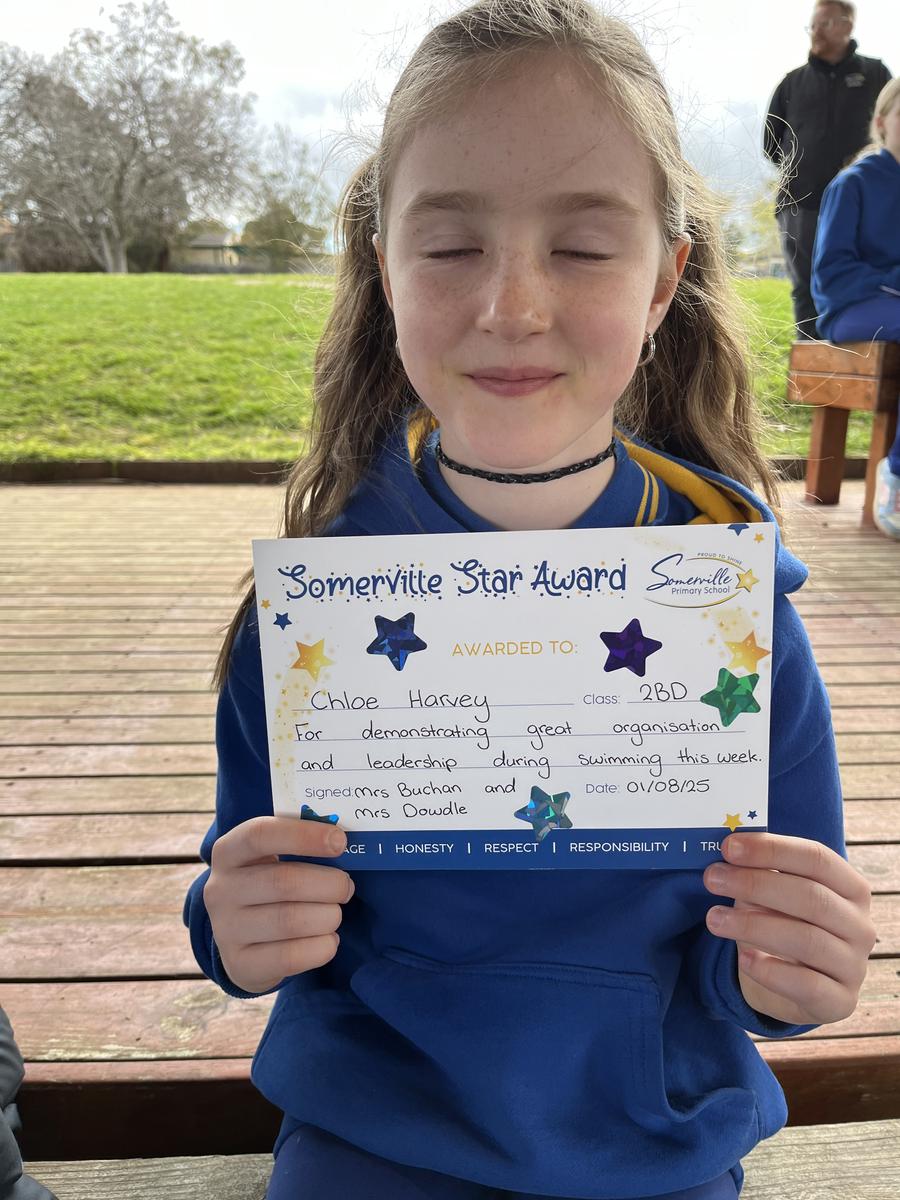 Somerville Star Award
PROUD TO SHINE
Somerville
Primary School
AWARDED TO:
Chloe Harvey Class: 2BD
For demonstrating great organisation
and leadership during swimming this week.
Signed: Mrs Buchan and Date: 01/08/25
Mrs Dowdle
AGE | HONESTY | RESPECT | RESPONSIBILITY | TRU